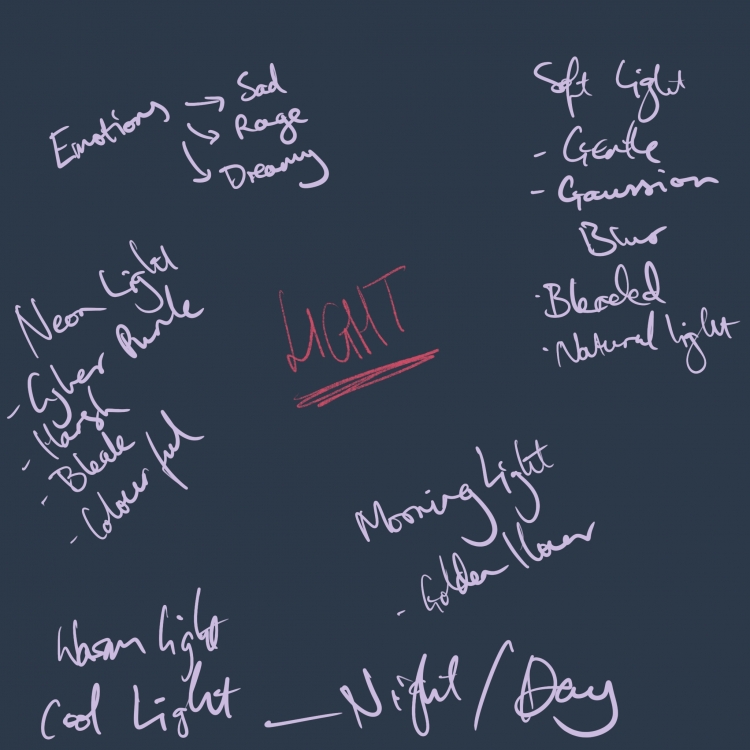 Emotions → Sad
→ Rage
→ Dreamy
Soft light
- Gentle
- Gaussian
Blur
· Blended
· Natural light
LIGHT
Neon Light
- Cyber Punk
- Harsh
- Bleak
- Colourful
Morning Light
- Golden Hour
Warm light
Cool Light — Night / Day